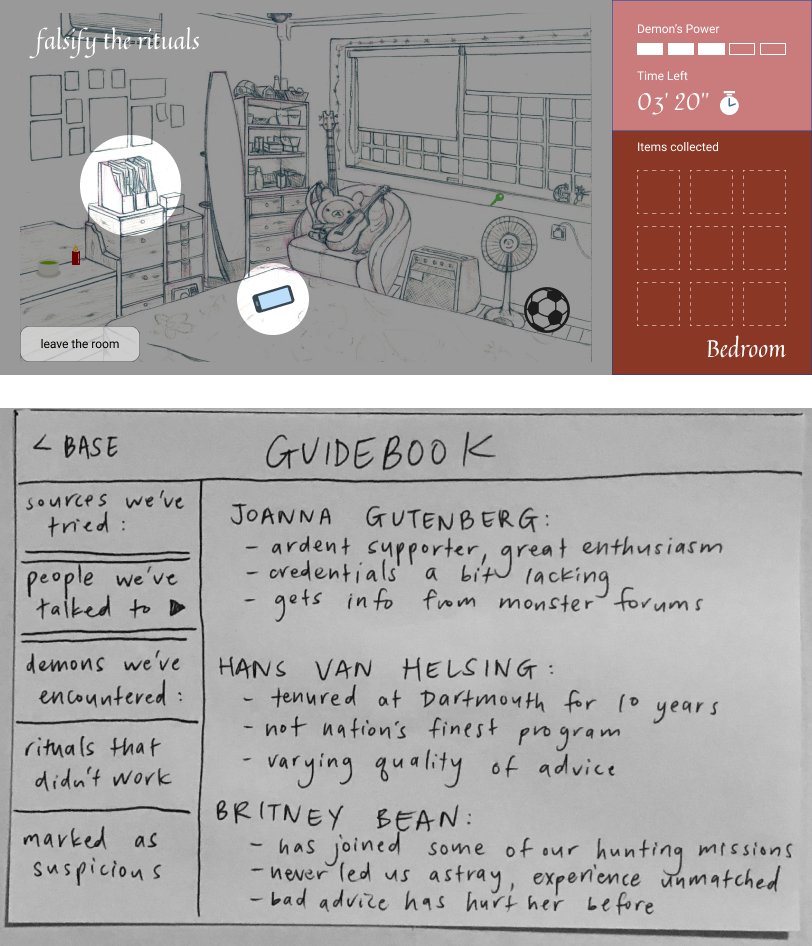 falsify the rituals
leave the room
Demon's Power
Time Left
03' 20"
Items collected
Bedroom
< BASE
GUIDEBOOK
sources we've
tried :
people we've
talked to ▶
demons we've
encountered :
rituals that
didn't work
marked as
suspicious
JOANNA GUTENBERG:
- ardent supporter, great enthusiasm
- credentials a bit lacking
- gets info from monster forums
HANS VAN HELSING:
- tenured at Dartmouth for 10 years
- not nation's finest program
- varying quality of advice
BRITNEY BEAN:
- has joined some of our hunting missions
- never led us astray, experience unmatched
- bad advice has hurt her before